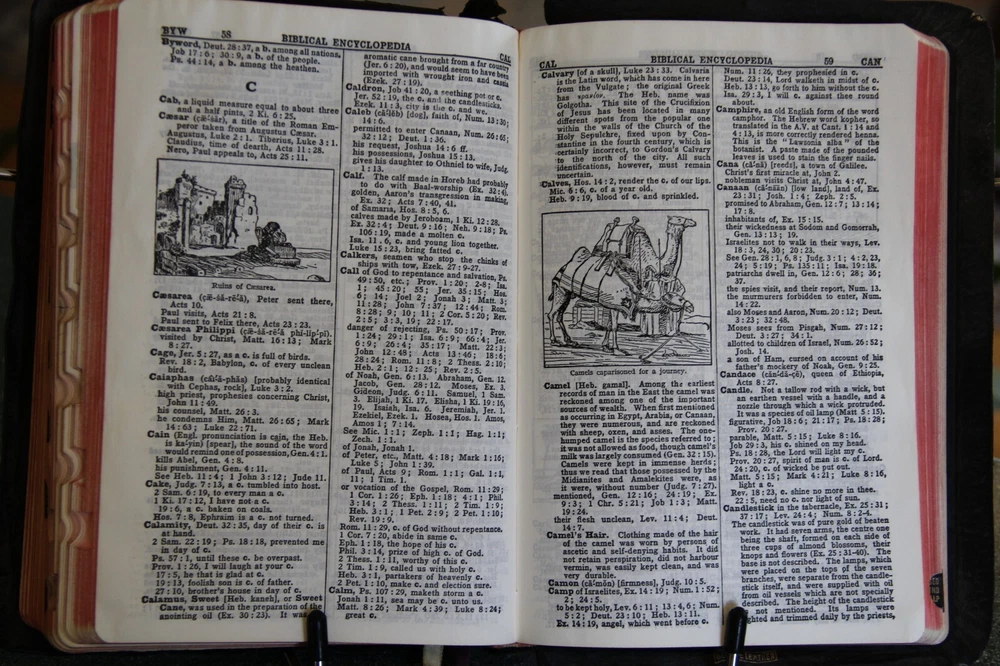 BYW 58 BIBLICAL ENCYCLOPEDIA CAL
Byword, Deut. 28:37, a b. among all nations.
Job 17:6; 30:9, a b. of the people.
Ps. 44:14, a b. among the heathen.
C
Cab, a liquid measure equal to about three
and a half pints, 2 Ki. 6:25.
Cæsar (çē'zär), a title of the Roman Em-
peror taken from Augustus Cæsar.
Augustus, Luke 2:1. Tiberius, Luke 3:1.
Claudius, time of dearth, Acts 11:28.
Nero, Paul appeals to, Acts 25:11.
Ruins of Cæsarea.
Cæsarea (çĕ-să-rē'ȧ), Peter sent there,
Acts 10.
Paul visits, Acts 21:8.
Paul sent to Felix there, Acts 23:23.
Cæsarea Philippi
visited by Christ, Matt. 16:13; Mark
8:27.
Cage, Jer. 5:27, as a c. is full of birds.
Rev. 18:2, Babylon, c. of every unclean
bird.
Caiaphas (cāi'ȧ-phăs) [probably identical
with Cephas, rock], Luke 3:2.
high priest, prophesies concerning Christ,
John 11:49.
his counsel, Matt. 26:3.
he condemns Him, Matt. 26:65; Mark
14:63; Luke 22:71.
Cain (Engl. pronunciation is cain, the Heb.
is ka'yin) [spear], the sound of the word
would remind one of possession, Gen. 4:1.
kills Abel, Gen. 4:8.
his punishment, Gen. 4:11.
See Heb. 11:4; 1 John 3:12; Jude 11.
Cake, Judg. 7:13, a c. tumbled into host.
2 Sam. 6:19, to every man a c.
1 Ki. 17:12, I have not a c.
19:6, a c. baken on coals.
Hos. 7:8, Ephraim is a c. not turned.
Calamity, Deut. 32:35, day of their c. is
at hand.
2 Sam. 22:19; Ps. 18:18, prevented me
in day of c.
Ps. 57:1, until these c. be overpast.
Prov. 1:26, I will laugh at your c.
17:5, he that is glad at c.
19:13, foolish son is c. of father.
27:10, brother's house in day of c.
Calamus, Sweet [Heb. kaneh], or Sweet
Cane, was used in the preparation of the
anointing oil (Ex. 30:23). It was
aromatic cane brought from a far country
(Jer. 6:20), and would seem to have been
imported with wrought iron and cassia
(Ezek. 27:19).
Caldron, Job 41:20, a seething pot or c.
Jer. 52:19, the c. and the candlesticks.
Ezek. 11:3, city is the c. and we.
Caleb (cā'lĕb) [dog], faith of, Num. 13:30;
14:6.
permitted to enter Canaan, Num. 26:65;
32:12; Deut. 1:36.
his request, Joshua 14:6 ff.
his possessions, Joshua 15:13.
gives his daughter to Othniel to wife, Judg.
1:13.
Calf. The calf made in Horeb had probably
to do with Baal-worship (Ex. 32:4).
golden, Aaron's transgression in making,
Ex. 32; Acts 7:40, 41.
of Samaria, Hos. 8:5, 6.
calves made by Jeroboam, 1 Ki. 12:28.
Ex. 32:4; Deut. 9:16; Neh. 9:18; Ps.
106:19, made a molten c.
Isa. 11:6, c. and young lion together.
Luke 15:23, bring fatted c.
Calkers, seamen who stop the chinks of
ships with tow, Ezek. 27:9-27.
Call of God to repentance and salvation, Ps.
49:50, etc.; Prov. 1:20; 2-8; Isa.
1; 45:20; 55; Jer. 35:15; Hos.
6; 14; Joel 2; Jonah 3; Matt. 3;
11:28; John 7:37; 12:44; Rom.
8:28; 9; 10; 11; 2 Cor. 5:20; Rev.
2:5; 3:3, 19; 22:17.
danger of rejecting, Ps. 50:17; Prov.
1:24; 29:1; Isa. 6:9; 66:4; Jer.
6:9; 26:4; 35:17; Matt. 22:3;
John 12:48; Acts 13:46; 18:6;
28:24; Rom. 11:8; 2 Thess. 2:10;
Heb. 2:1; 12:25; Rev. 2:5.
of Noah, Gen. 6:13. Abraham, Gen. 12.
Jacob, Gen. 28:12. Moses, Ex. 3.
Gideon, Judg. 6:11. Samuel, 1 Sam.
3. Elijah, 1 Ki. 17. Elisha, 1 Ki. 19:16,
19. Isaiah, Isa. 6. Jeremiah, Jer. 1.
Ezekiel, Ezek. 1. Hosea, Hos. 1. Amos,
Amos 1; 7:14.
See Mic. 1:1; Zeph. 1:1; Hag. 1:1;
Zech. 1:1.
of Jonah, Jonah 1.
of Peter, etc., Matt. 4:18; Mark 1:16;
Luke 5; John 1:39.
of Paul, Acts 9; Rom. 1:1; Gal. 1:1,
11; 1 Tim. 1.
or vocation of the Gospel, Rom. 11:29;
1 Cor. 1:26; Eph. 1:18; 4:1; Phil.
3:14; 2 Thess. 1:11; 2 Tim. 1:9;
Heb. 3:1; 1 Pet. 2:9; 2 Pet. 1:10;
Rev. 19:9.
Rom. 11:29, c. of God without repentance.
1 Cor. 7:20, abide in same c.
Eph. 1:18, the hope of his c.
Phil. 3:14, prize of high c. of God.
2 Thess. 1:11, worthy of this c.
2 Tim. 1:9, called us with holy c.
Heb. 3:1, partakers of heavenly c.
2 Pet. 1:10, make c. and election sure.
Calm, Ps. 107:29, maketh storm a c.
Jonah 1:11, sea may be c. unto us.
Matt. 8:26; Mark 4:39; Luke 8:24;
great c.
CAL BIBLICAL ENCYCLOPEDIA 59 CAN
Calvary [of a skull], Luke 23:33. Calvaria
is the Latin word, which has come here
from the Vulgate; the original Greek
has
Golgotha. This site of the Crucifixion
of Jesus has been located in many
different spots from the popular one
within the walls of the Church of the
Holy Sepulchre, fixed upon by Con-
stantine in the fourth century, which is
certainly incorrect, to Gordon's Calvary
to the north of the city. All such
identifications, however, must remain
uncertain.
Calves, Hos. 14:2, render the c. of our lips.
Mic. 6:6, c. of a year old.
Heb. 9:19, blood of c. and sprinkled.
Camels caparisoned for a journey.
Camel [Heb. gamal]. Among the earliest
records of man in the East the camel was
reckoned among one of the important
sources of wealth. When first mentioned
as occurring in Egypt, Arabia, or Canaan,
they were numerous, and are reckoned
with sheep, oxen, and asses. The one-
humped camel is the species referred to;
it was not allowed as food, though camel's
milk was largely consumed (Gen. 32:15).
Camels were kept in immense herds;
thus we read that those possessed by the
Midianites and Amalekites were, as
it were, without number (Judg. 7:27).
mentioned, Gen. 12:16; 24:19; Ex.
9:3; 1 Chr. 5:21; Job 1:3; Matt.
19:24.
their flesh unclean, Lev. 11:4; Deut.
14:7.
Camel's Hair. Clothing made of the hair
of the camel was worn by persons of
ascetic and self-denying habits. It did
not retain perspiration, did not harbour
vermin, was easily kept clean, and was
very durable.
Camon (cā'mŏn) [firmness], Judg. 10:5.
Camp of Israelites, Ex. 14:19; Num. 1:52;
2; 24:5.
to be kept holy, Lev. 6:11; 13:4,6; Num.
5:2; Deut. 23:10; Heb. 13:11.
Ex. 14:19, angel, which went before c.
Num. 11:26, they prophesied in c.
Deut. 23:14, Lord walketh in midst of c.
Heb. 13:13, go forth to him without the c.
Isa. 29:3, I will c. against thee round
about.
Camphire, an old English form of the word
camphor. The Hebrew word kopher, so
translated in the A.V. at Cant. 1:14 and
4:13, is more correctly rendered henna.
This is the "Lawsonia alba" of the
botanist. A paste made of the pounded
leaves is used to stain the finger nails.
Cana (cā'nȧ) [reeds], a town of Galilee.
Christ's first miracle at, John 2.
nobleman visits Christ at, John 4:47.
Canaan (cā'năȧn) [low land], land of, Ex.
23:31; Josh. 1:4; Zeph. 2:5.
promised to Abraham, Gen. 12:7; 13:14;
17:8.
inhabitants of, Ex. 15:15.
their wickedness at Sodom and Gomorrah,
Gen. 13:13; 19.
Israelites not to walk in their ways, Lev.
18:3, 24, 30; 20:23.
See Gen. 28:1, 6, 8; Judg. 3:1; 4:2,23,
24; 5:19; Ps. 135:11; Isa. 19:18.
patriarchs dwell in, Gen. 12:6; 28; 36;
37.
the spies visit, and their report, Num. 13.
the murmurers forbidden to enter, Num.
14:22.
also Moses and Aaron, Num. 20:12; Deut.
3:23; 32:48.
Moses sees from Pisgah, Num. 27:12;
Deut. 3:27; 34:1.
allotted to children of Israel, Num. 26:52;
Josh. 14.
a son of Ham, cursed on account of his
father's mockery of Noah, Gen. 9:25.
Candace (căn'dȧ-çē), queen of Ethiopia,
Acts 8:27.
Candle. Not a tallow rod with a wick, but
an earthen vessel with a handle, and a
nozzle through which a wick protruded.
It was a species of oil lamp (Matt. 5:15).
figurative, Job 18:6; 21:17; Ps. 18:28;
Prov. 20:27.
parable, Matt. 5:15; Luke 8:16.
Job 29:3, his c. shined on my head.
Ps. 18:28, the Lord will light my c.
Prov. 20:27, spirit of man is c. of Lord.
24:20, c. of wicked be put out.
Matt. 5:15; Mark 4:21; Luke 8:16,
light a c.
Rev. 18:23, c. shine no more in thee.
22:5, need no c. nor light of sun.
Candlestick in the tabernacle, Ex. 25:31;
37:17; Lev. 24:4; Num. 8:2-4.
The candlestick was of pure gold of beaten
work. It had seven arms, the centre one
being the shaft, formed on each side of
three cups of almond blossoms, their
knops and flowers (Ex. 25:31-40). The
base is not described. The lamps, which
were placed on the tops of the seven
branches, were separate from the candle-
stick itself, and were supplied with oil
from oil vessels which are not specially
described. The height of the candlestick
not mentioned. Its lamps were
and trimmed daily by the priests,